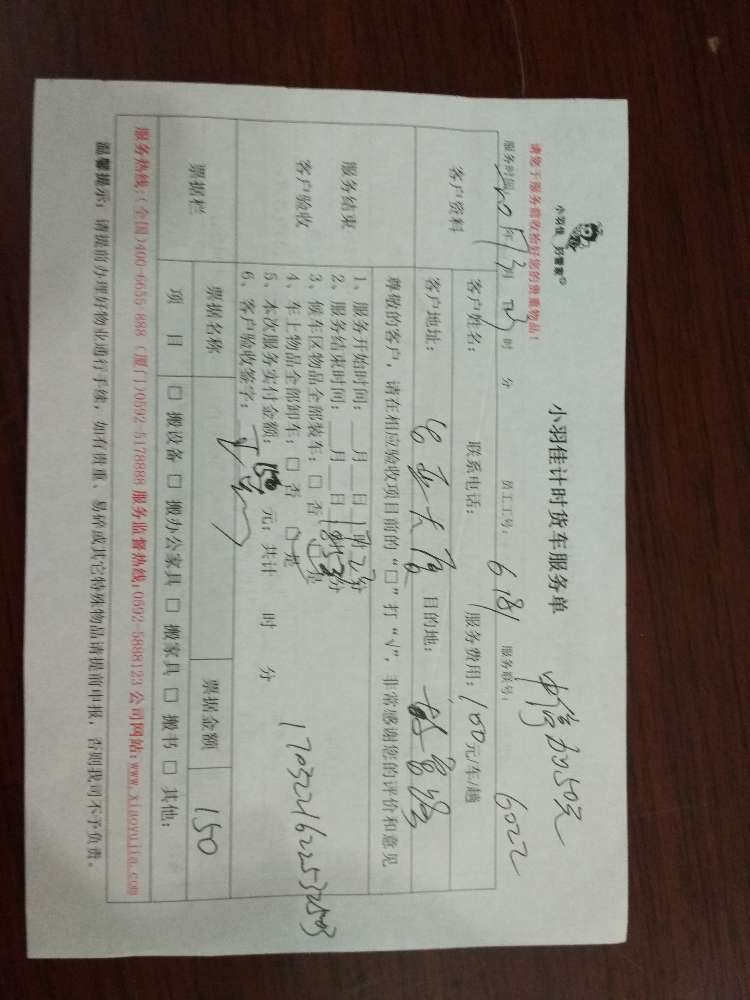 小羽佳 好管家
小羽佳计时货车服务单
请您于服务前收拾好您的贵重物品!
服务时间: 年 月 时 分 员工工号: 服务联号: 6022
客户资料
客户姓名: 联系电话: 服务费用: 100元/车/趟
客户地址: 目的地:
尊敬的客户, 请在相应验收项目前的“□”打“√”, 非常感谢您的评价和意见
服务结束
客户验收
1、服务开始时间: 月 日 时 分
2、服务结束时间: 月 日 时 分
3、候车区物品全部装车: □ 否 □ 是
4、车上物品全部卸车: □ 否 □ 是
5、本次服务实付金额: 元; 共计 时 分
6、客户验收签字:
票据栏
票据名称 票据金额 150
项 目 □ 搬设备 □ 搬办公家具 □ 搬家具 □ 搬书 □ 其他:
服务热线: (全国)400-6655-888 (厦门)0592-5178888 服务监督热线:0592-5888123 公司网站:www.xiaoyujia.com
温馨提示: 请提前办理好物业通行手续, 如有贵重、易碎或其它特殊物品请提前申报, 否则我司不予负责。